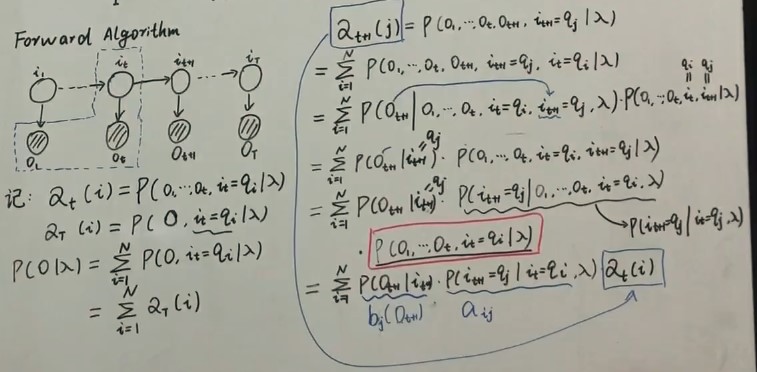 Forward Algorithm
i₁ iₜ iₜ₊₁ i_T
o₁ oₜ oₜ₊₁ o_T
记: αₜ(i) = P(o₁,…,oₜ, iₜ=qᵢ|λ)
α_T(i) = P(O, iₜ=qᵢ|λ)
P(O|λ) = Σᵢ₌₁ᴺ P(O, iₜ=qᵢ|λ)
= Σᵢ₌₁ᴺ α_T(i)
αₜ₊₁(j) = P(o₁,…,oₜ, oₜ₊₁, iₜ₊₁=qⱼ|λ)
= Σᵢ₌₁ᴺ P(o₁,…,oₜ, oₜ₊₁, iₜ₊₁=qⱼ, iₜ=qᵢ|λ)
qᵢ qⱼ
= Σᵢ₌₁ᴺ P(oₜ₊₁|o₁,…,oₜ, iₜ=qᵢ, iₜ₊₁=qⱼ, λ)·P(o₁,…,oₜ, iₜ, iₜ₊₁|λ)
= Σᵢ₌₁ᴺ P(oₜ₊₁|iₜ₊₁=qⱼ)·P(o₁,…,oₜ, iₜ=qᵢ, iₜ₊₁=qⱼ|λ)
= Σᵢ₌₁ᴺ P(oₜ₊₁|iₜ₊₁=qⱼ)·P(iₜ₊₁=qⱼ|o₁,…,oₜ, iₜ=qᵢ, λ)
P(iₜ₊₁=qⱼ|iₜ=qⱼ, λ)
·P(o₁,…,oₜ, iₜ=qᵢ|λ)
= Σᵢ₌₁ᴺ P(oₜ₊₁|iₜ₊₁)·P(iₜ₊₁=qⱼ|iₜ=qᵢ, λ) αₜ(i)
bⱼ(oₜ₊₁) aᵢⱼ